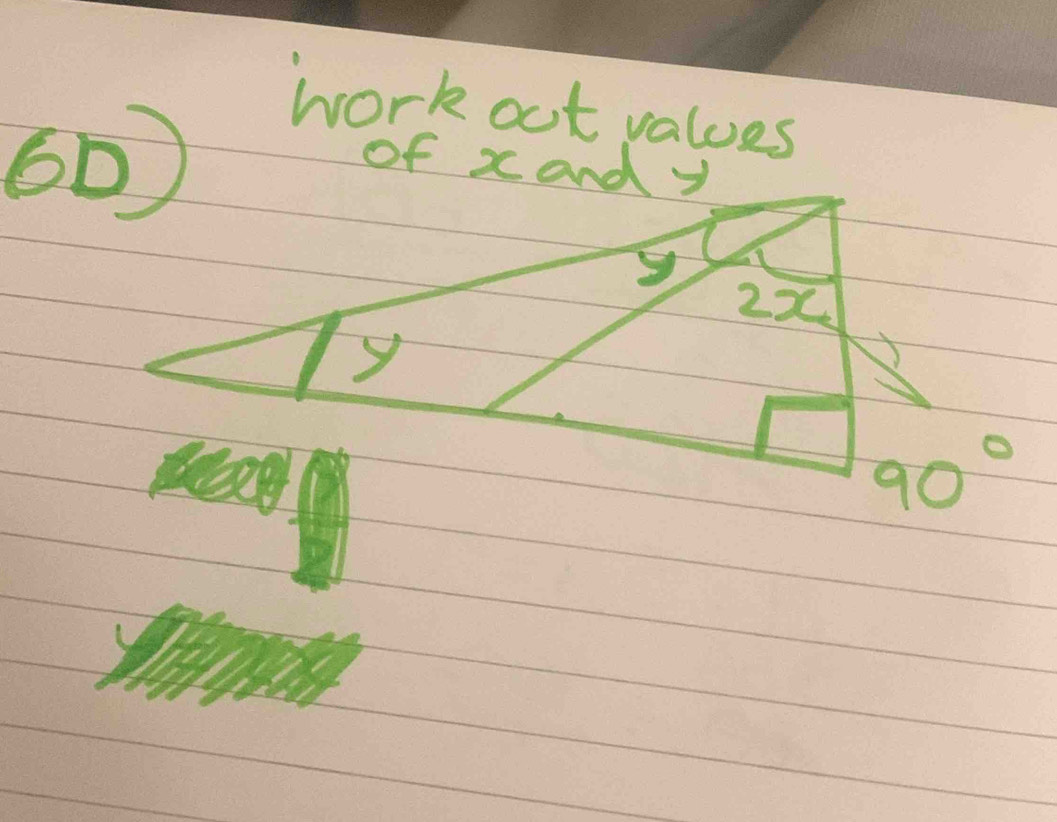 work out values
of x and y
6D)
y
2x
y
90°